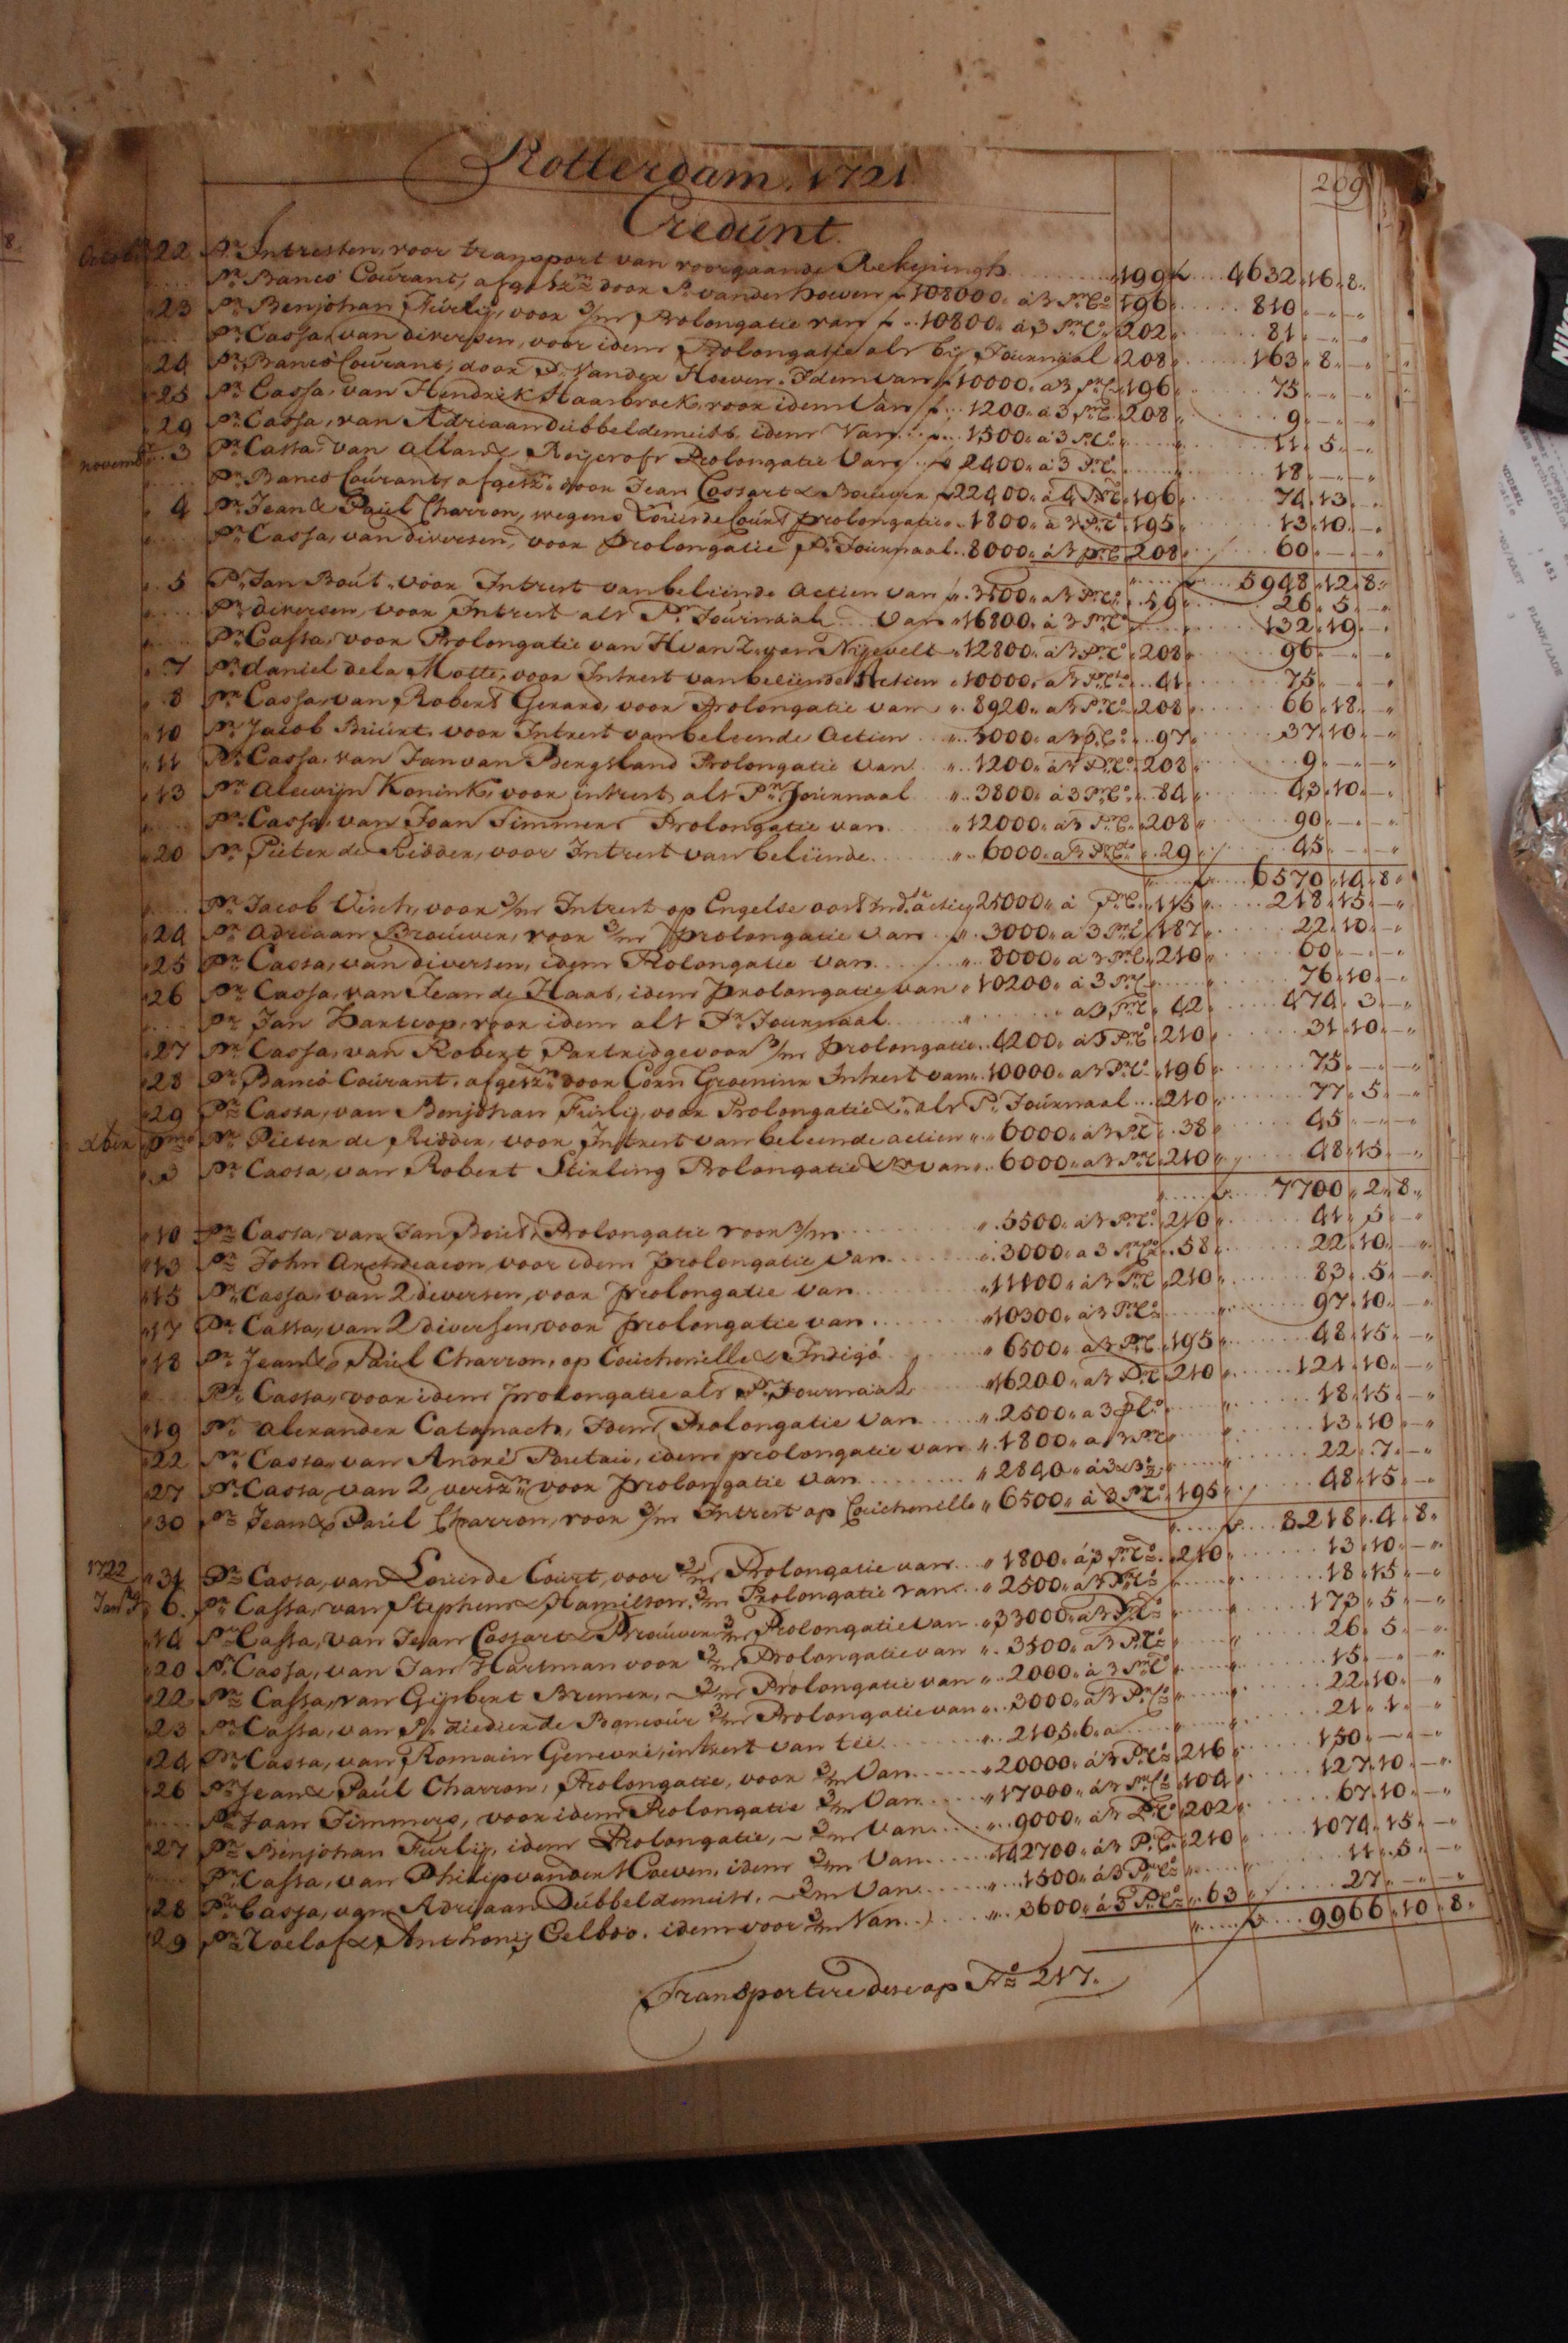 Rotterdam. 1721.
209
Credúnt.
Octob. 22 Pr. Intresten, voor transport van voorgaande Rekeningh 199 4632 16 8
Pr. Banco Courant, afgeschr. door P. vander hoeven 108000 à 3 Pr. Co. 196 810
23 Pr. Benjohan Fúrly, voor 3/m Prolongatie van 10800 à 3 Pr. Co. 202 81
Pr. Cassa, van diversen, voor idem Prolongatie als bij Journaal 208 163 8
24 Pr. Banco Courant, door P. Vander Hoeven. Idem van 10000 à 3 Pr. Co. 196 75
25 Pr. Cassa, van Hendrik Haasbroek, voor idem Van 1200 à 3 Pr. Co. 208 9
29 Pr. Cassa, van Adriaan dubbeldemuts, idem Van 1500 à 3 Pr. Co. 11 5
novemb. 3 Pr. Cassa van Allard Roijcroft Prolongatie Van 2400 à 3 Pr. Co. 18
Pr. Banco Courant, afgesz. door Jean Cossart & Bouwer 22400 à 4 Pr. Co. 196 74 13
4 Pr. Jean & Paul Charron, wegens Louis de Court prolongatie 1800 à 3 Pr. Co. 195 13 10
Pr. Cassa, van diversen, voor prolongatie Pr. Journaal 8000 à 3 pr. Co. 208 60
5948 12 8
5 Pr. Jan Bout, voor Intrest van beleende Actien van 3500 à 3 Pr. Co. 59 26 5
Pr. diversen, voor Intrest als Pr. Journaal Van 16800 à 3 Pr. Co. 132 19
Pr. Cassa, voor Prolongatie van H van Z. van Nijevelt 12800 à 3 Pr. Co. 208 96
7 Pr. daniel dela Motte, voor Intrest van beleende Actien 10000 à 3 Pr. Co. 41 75
8 Pr. Cassa, van Robert Gerard, voor Prolongatie van 8920 à 3 Pr. Co. 208 66 18
10 Pr. Jacob Búúrt, voor Intrest van beleende Actien 5000 à 3 p. Co. 97 37 10
11 Pr. Cassa, van Jan van Bergsland Prolongatie Van 1200 à 3 Pr. Co. 208 9
13 Pr. Alewijn Konink, voor intrest, als Pr. Journaal 3800 à 3 Pr. Co. 84 43 10
Pr. Cassa, van Joan Timmers Prolongatie van 12000 à 3 Pr. Co. 208 90
20 Pr. Pieter de Ridder, voor Intrest van beleende 6000 à 3 Pr. Co. 29 45
6570 14 8
Pr. Jacob Visch, voor 3/m Intrest op Engelse oost Ind. actie 25000 à Pr. Co. 115 218 15
24 Pr. Adriaan Brouwer, voor 3/m prolongatie van 3000 à 3 Pr. Co. 187 22 10
25 Pr. Cassa, van diversen, idem Prolongatie van 8000 à 3 Pr. Co. 210 60
26 Pr. Cassa, van Jean de Haas, idem prolongatie van 10200 à 3 Pr. Co. 76 10
Pr. Jan Hartcop, voor idem als Pr. Journaal à 3 Pr. Co. 42 474 3
27 Pr. Cassa, van Robert Partridge voor 3/m prolongatie 4200 à 3 Pr. Co. 210 31 10
28 Pr. Banco Courant, afgesz. door Corn Groeninx Intrest van 10000 à 3 Pr. Co. 196 75
29 Pr. Cassa, van Benjohan Furly, voor Prolongatie &a. als Pr. Journaal 210 77 5
xber pmo. Pr. Pieter de Ridder, voor Intrest van beleende actien 6000 à 3 Pr. Co. 38 45
3 Pr. Cassa, van Robert Stirling Prolongatie van 6000 à 3 Pr. Co. 210 48 15
7700 2 8
10 Pr. Cassa, van Jan Bout, Prolongatie voor 3/m 5500 à 3 Pr. Co. 210 41 5
13 Pr. John Archdeacon, voor idem prolongatie van 3000 à 3 Pr. Co. 58 22 10
15 Pr. Cassa, van 2 diversen, voor prolongatie van 11100 à 3 Pr. Co. 210 83 5
17 Pr. Cassa, van 2 diversen, voor prolongatie van 10300 à 3 Pr. Co. 97 10
18 Pr. Jean & Paul Charron, op Couchenille & Indigó 6500 à 3 Pr. Co. 195 48 15
Pr. Cassa, voor idem prolongatie als Pr. Journaal 16200 à 3 Pr. Co. 210 121 10
19 Pr. Alexander Catanach, Idem Prolongatie van 2500 à 3 p. Co. 18 15
22 Pr. Cassa, van André Poutau, idem prolongatie van 1800 à 3 Pr. Co. 13 10
27 Pr. Cassa van 2 versz. voor prolongatie van 2840 22 7
30 Pr. Jean & Paul Charron, voor 3/m Intrest op Couchenille 6500 à 3 Pr. Co. 195 48 15
8218 4 8
1722
31 Pr. Cassa, van Louis de Court, voor 3/m Prolongatie van 1800 à 3 Pr. Co. 210 13 10
Jan. 6 Pr. Cassa, van Stephen & Hamilton, 3/m Prolongatie van 2500 à 3 Pr. Co. 18 15
14 Pr. Cassa, van Jean Cossart & Brouwer 3/m Prolongatie van 33000 à 3 Pr. Co. 173 5
20 Pr. Cassa, van Jan Hartman voor 3/m Prolongatie van 3500 à 3 Pr. Co. 26 5
22 Pr. Cassa, van Gijsbert Bremer, 3/m Prolongatie van 2000 à 3 Pr. Co. 15
23 Pr. Cassa, van P. 3/m Prolongatie van 3000 à 3 Pr. Co. 22 10
24 Pr. Cassa, van Romain Genevri, intrest van tee 2105.6. a 21 1
26 Pr. Jean & Paul Charron, Prolongatie, voor 3/m Van 20000 à 3 Pr. Co. 216 150
Pr. Joan Timmers, voor idem Prolongatie 3/m Van 17000 à 3 Pr. Co. 104 127 10
27 Pr. Benjohan Furly, idem Prolongatie, 3/m Van 9000 à 3 Pr. Co. 202 67 10
Pr. Cassa, van Philip vander Hoeven, idem 3/m Van 142700 à 3 Pr. Co. 210 1074 15
28 Pr. Cassa, van Adriaan Dubbeldemuts, 3/m Van 1500 à 3 Pr. Co. 11 5
29 Pr. Roelof & Anthonij Eelboo. idem voor 3/m Van 3600 à 3 Pr. Co. 63 27
9966 10 8
Transportere dese op No. 217.